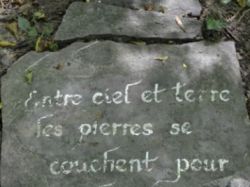 Entre ciel et terre
les pierres se
couchent pour